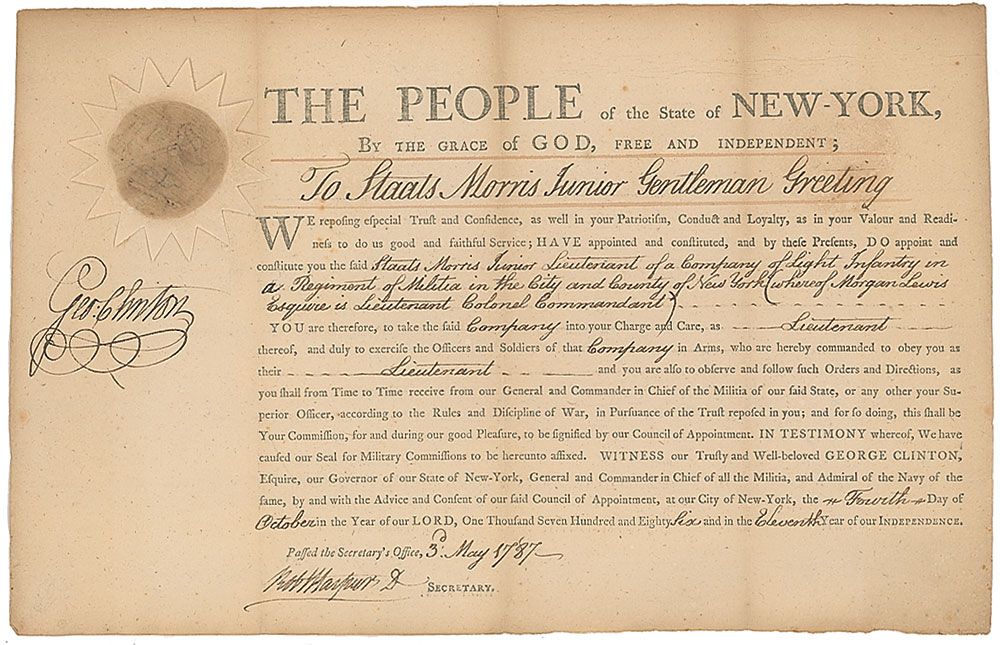 THE PEOPLE of the State of NEW-YORK,
BY THE GRACE of GOD, FREE AND INDEPENDENT;
To Staats Morris Junior Gentleman Greeting
WE reposing especial Trust and Confidence, as well in your Patriotism, Conduct and Loyalty, as in your Valour and Readi-
ness to do us good and faithful Service; HAVE appointed and constituted, and by these Presents, DO appoint and
constitute you the said Staats Morris Junior Lieutenant of a Company of Light Infantry in
a Regiment of Militia in the City and County of New York (whereof Morgan Lewis
Esquire is Lieutenant Colonel Commandant)
YOU are therefore, to take the said Company into your Charge and Care, as Lieutenant
thereof, and duly to exercise the Officers and Soldiers of that Company in Arms, who are hereby commanded to obey you as
their Lieutenant and you are also to observe and follow such Orders and Directions, as
you shall from Time to Time receive from our General and Commander in Chief of the Militia of our said State, or any other your Su-
perior Officer, according to the Rules and Discipline of War, in Pursuance of the Trust reposed in you; and for so doing, this shall be
Your Commission, for and during our good Pleasure, to be signified by our Council of Appointment. IN TESTIMONY whereof, We have
caused our Seal for Military Commissions to be hereunto affixed. WITNESS our Trusty and Well-beloved GEORGE CLINTON,
Geo. Clinton
Esquire, our Governor of our State of New-York, General and Commander in Chief of all the Militia, and Admiral of the Navy of the
same, by and with the Advice and Consent of our said Council of Appointment, at our City of New-York, the Fourth Day of
October in the Year of our LORD, One Thousand Seven Hundred and Eighty Six and in the Eleventh Year of our INDEPENDENCE.
Passed the Secretary's Office, 3d May 1787
Robt Harpur D SECRETARY.